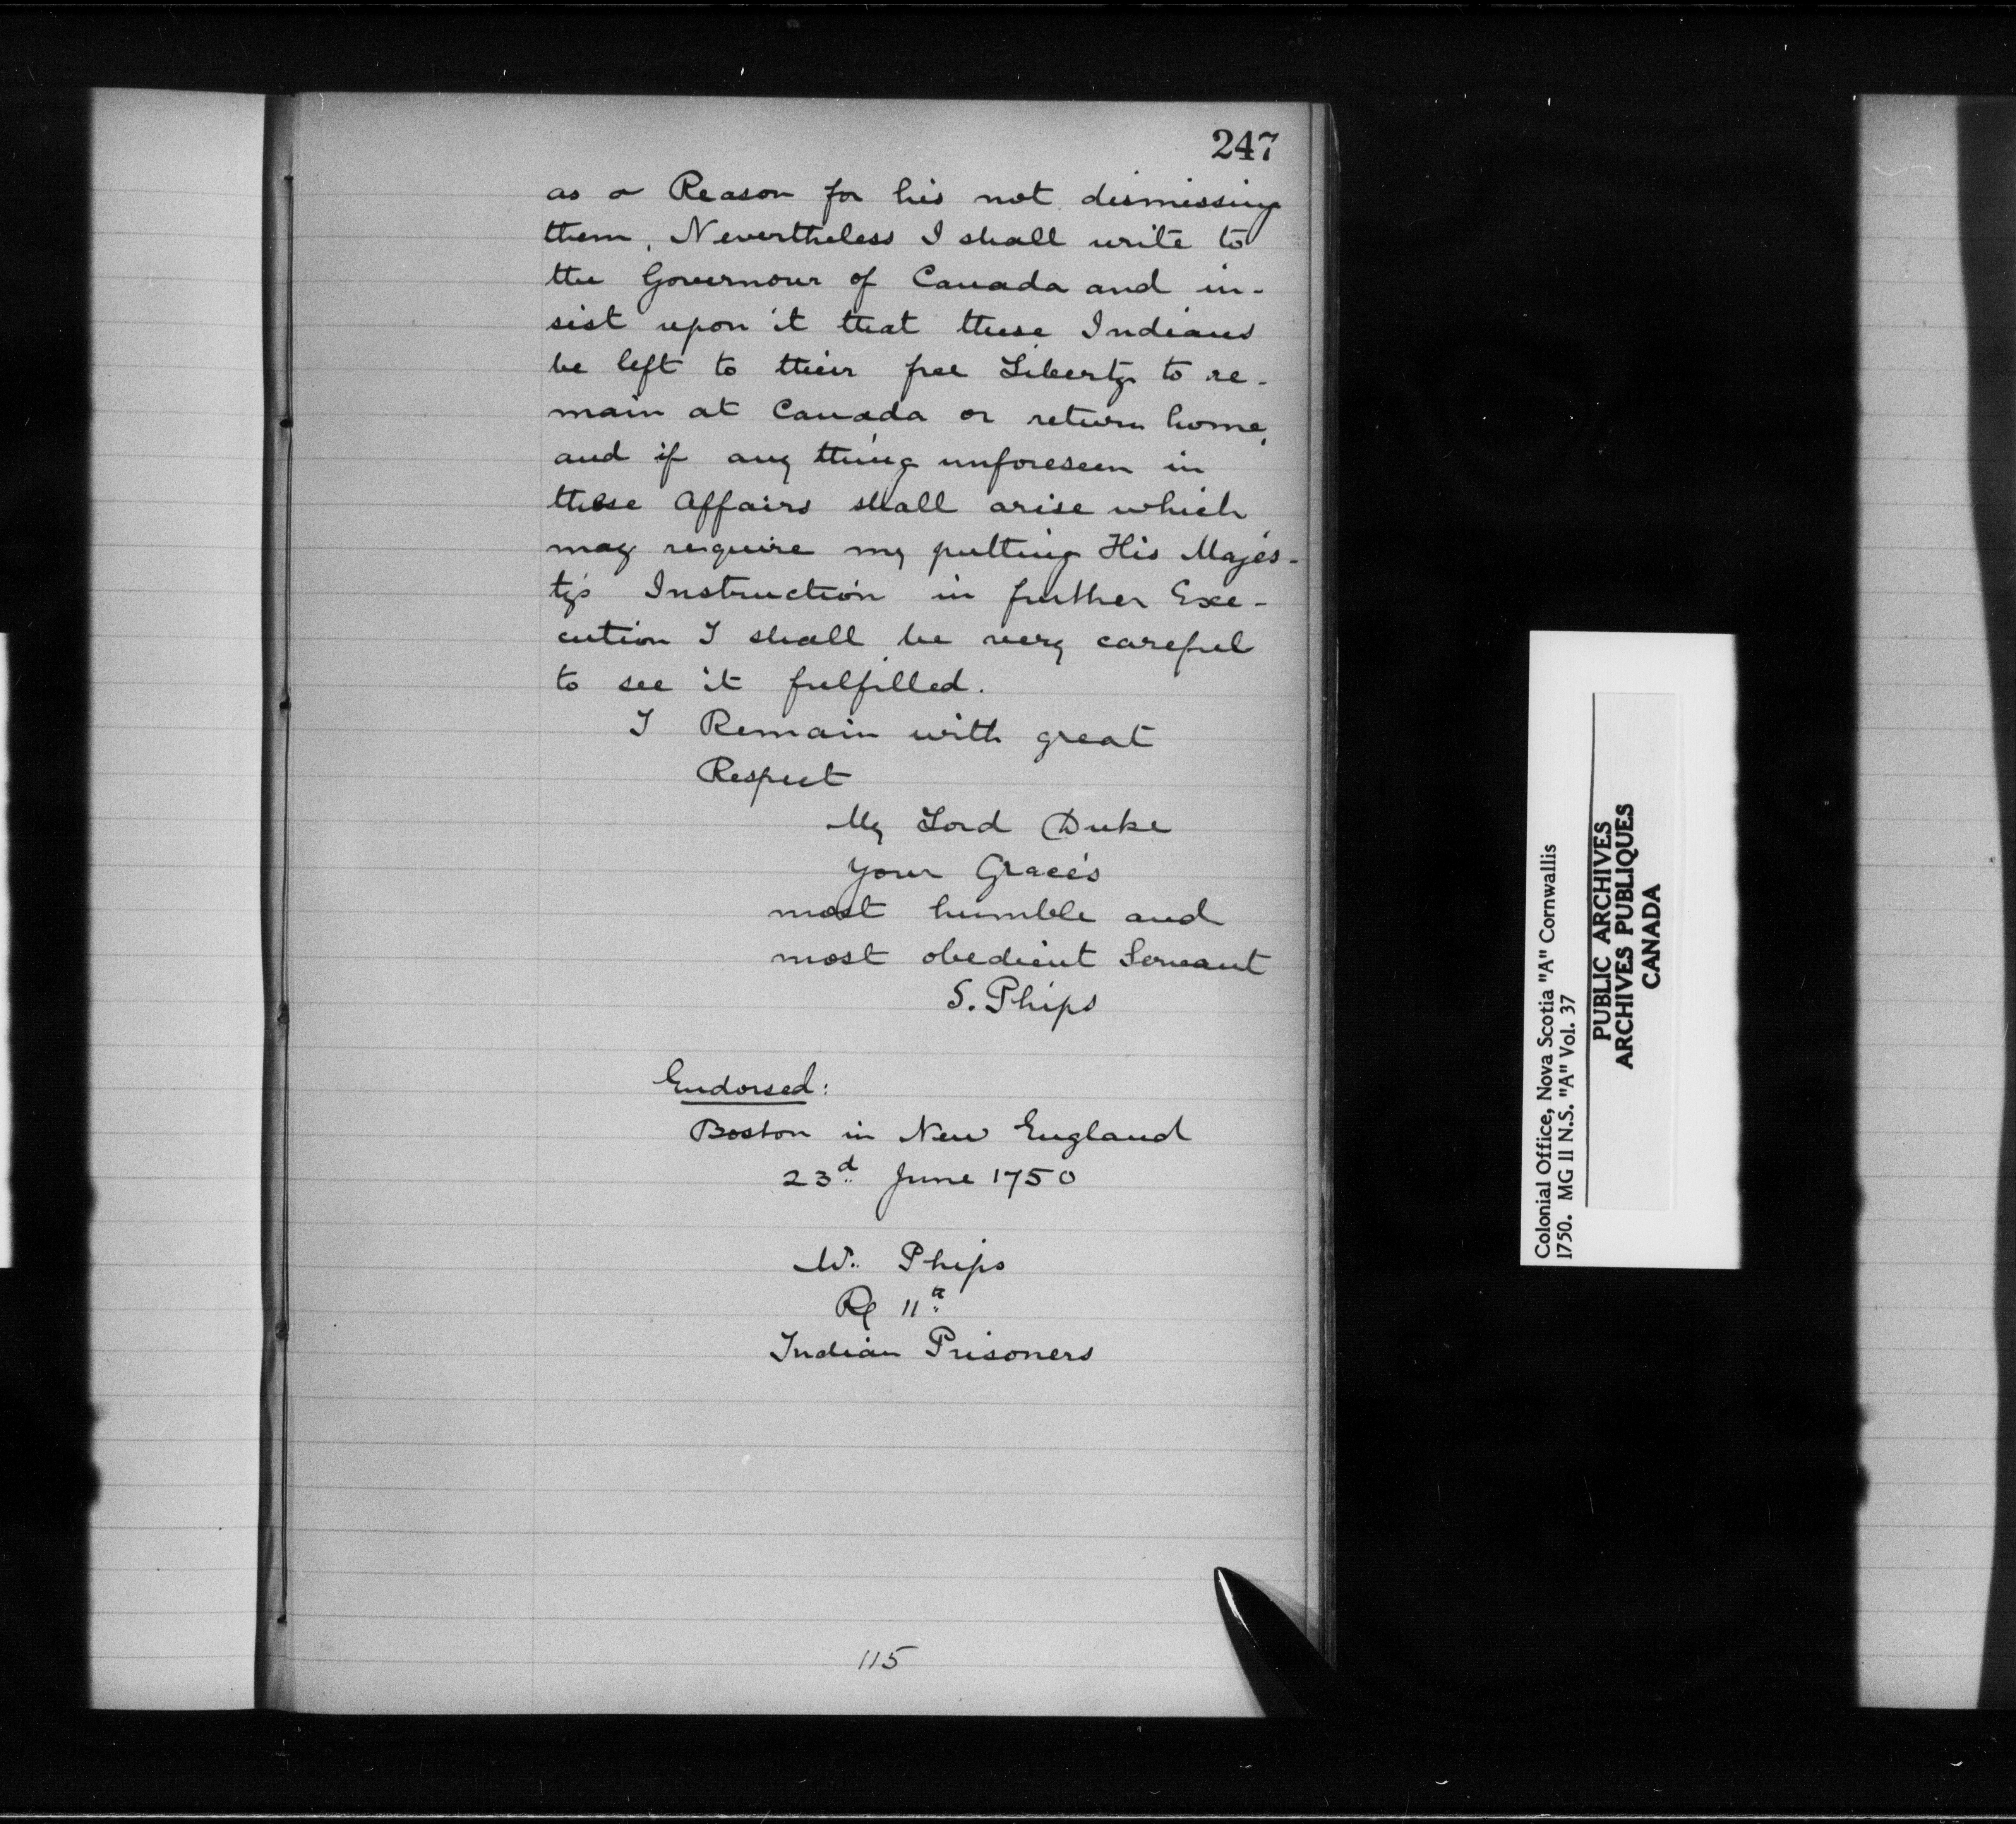 247
as a Reason for his not dismissing
them, Nevertheless I shall write to
the Governour of Canada and in-
sist upon it that these Indians
be left to their free Liberty to re-
main at Canada or return home,
and if any thing unforeseen in
these Affairs shall arise which
may require my putting His Majes-
ty's Instruction in further Exe-
cution I shall be very careful
to see it fulfilled.
I Remain with great
Respect
My Lord Duke
Your Grace's
most humble and
most obedient Servant
S. Phips
Endorsed:
Boston in New England
23d June 1750
Phips
11
Indian Prisoners
115
Colonial Office, Nova Scotia "A" Cornwallis
1750. MG 11 N.S. "A" Vol. 37
PUBLIC ARCHIVES
ARCHIVES PUBLIQUES
CANADA